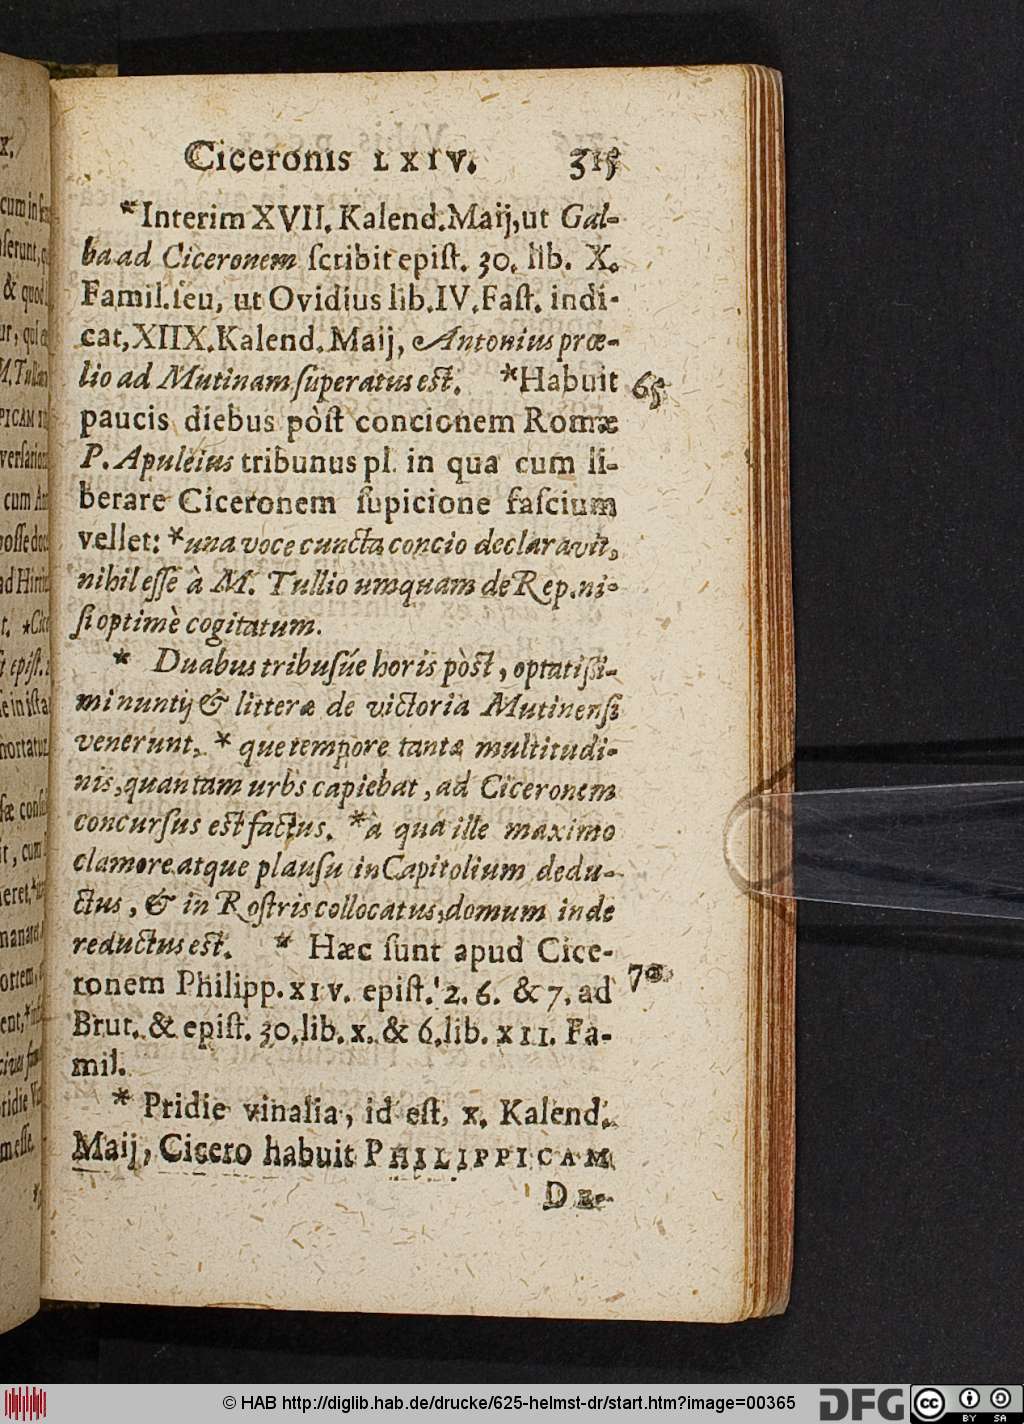 Ciceronis LXIV. 315
*Interim XVII. Kalend. Maij, ut Gal-
ba ad Ciceronem ſcribit epiſt. 30. lib. X.
Famil. ſeu, ut Ovidius lib. IV. Faſt. indi-
cat, XIIX. Kalend. Maij, Antonius prœ-
lio ad Mutinam ſuperatus est. *Habuit 65
paucis diebus pòſt concionem Romæ
P. Apuleius tribunus pl. in qua cum li-
berare Ciceronem ſuſpicione faſcium
vellet: *una voce cuncta concio declaravit,
nihil eſſe à M. Tullio umquam de Rep. ni-
ſi optimè cogitatum.
* Duabus tribuſúe horis pòst, optatiſſi-
mi nuntij & litteræ de victoria Mutinenſi
venerunt, * que tempore tantæ multitudi-
nis, quantam urbs capiebat, ad Ciceronem
concurſus est factus. *à qua ille maximo
clamore atque plauſu in Capitolium dedu-
ctus, & in Roſtris collocatus, domum inde
reductus est. * Hæc ſunt apud Cice-
ronem Philipp. XIV. epiſt. 2. 6. & 7. ad 70
Brut. & epiſt. 30. lib. X. & 6. lib. XII. Fa-
mil.
* Pridie vinalia, id eſt, X. Kalend.
Maij, Cicero habuit PHILIPPICAM
DE-
© HAB http://diglib.hab.de/drucke/625-helmst-dr/start.htm?image=00365
DFG
cc BY SA